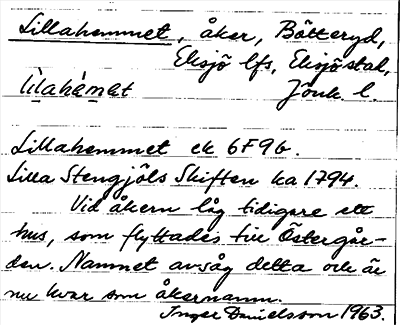 Lillahemmet, åker, Bötteryd,
Eksjö lfs, Eksjöstad,
Jönk. l.
Lillahemmet ek 6F9b.
Lilla Stengjöls Skiften ka 1794.
Vid åkern låg tidigare ett
hus, som flyttades till Östergår-
den. Namnet avsåg detta och är
nu kvar som åkernamn.
Inger Danielsson 1963.